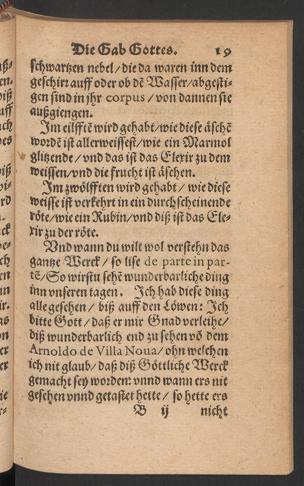 Die Gab Gottes. 19
schwartzen nebel / die da waren inn dem
geschirr auff oder ob dē Wasser / abgesti-
gen sind in jhr corpus / von dannen sie
außgiengen.
Im eilfftē wird gehabt / wie diese äschē
wordē ist allerweissest / wie ein Marmol
glitzende / vnd das ist das Elexir zu dem
weissen / vnd die frucht ist äschen.
Im zwölfften wird gehabt / wie diese
weisse ist verkehrt in ein durchscheinende
röte / wie ein Rubin / vnd diß ist das Ele-
xir zu der röte.
Vnd wann du wilt wol verstehn das
gantze Werck / so lise de parte in par-
tē / So wirstu sehē wunderbarliche ding
inn vnseren tagen. Ich hab diese ding
alle gesehen / biß auff den Löwen: Ich
bitte Gott / daß er mir Gnad verleihe /
diß wunderbarlich end zu sehen vō dem
Arnoldo de Villa Noua / ohn welchen
ich nit glaub / daß diß Göttliche Werck
gemacht sey worden: vnnd wann ers nit
gesehen vnnd getastet hette / so hette ers
B ij nicht